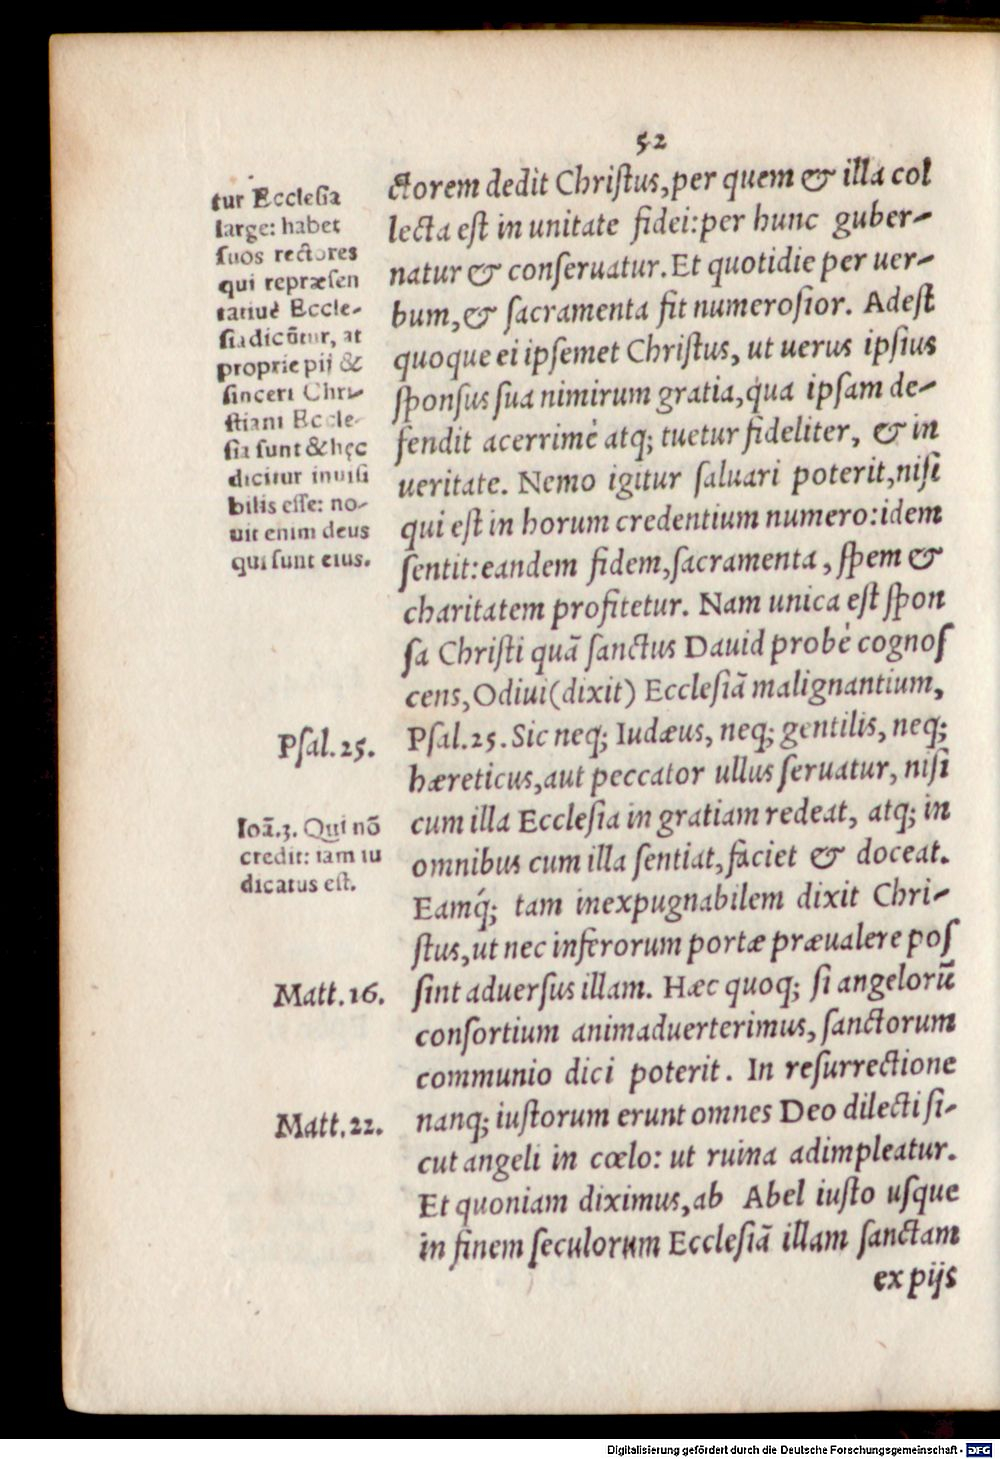 52
tur Ecclesia
large: habet
suos rectores
qui repræsen
tatiuè Eccle-
sia dicũtur, at
proprie pij &
sinceri Chri-
stiani Eccle-
sia sunt & hęc
dicitur inuisi
bilis esse: no-
uit enim deus
qui sunt eius.
Psal. 25.
Ioã.3. Qui nõ
credit: iam iu
dicatus est.
Matt. 16.
Matt. 22.
ctorem dedit Christus, per quem & illa col
lecta est in unitate fidei: per hunc guber-
natur & conseruatur. Et quotidie per uer-
bum, & sacramenta fit numerosior. Adest
quoque ei ipsemet Christus, ut uerus ipsius
sponsus sua nimirum gratia, qua ipsam de-
fendit acerrimè atq; tuetur fideliter, & in
ueritate. Nemo igitur saluari poterit, nisi
qui est in horum credentium numero: idem
sentit: eandem fidem, sacramenta, spem &
charitatem profitetur. Nam unica est spon
sa Christi quã sanctus Dauid probè cognos
cens, Odiui (dixit) Ecclesiã malignantium,
Psal. 25. Sic neq; Iudæus, neq; gentilis, neq;
hæreticus, aut peccator ullus seruatur, nisi
cum illa Ecclesia in gratiam redeat, atq; in
omnibus cum illa sentiat, faciet & doceat.
Eamq́; tam inexpugnabilem dixit Chri-
stus, ut nec inferorum portæ præualere pos
sint aduersus illam. Hæc quoq; si angelorũ
consortium animaduerterimus, sanctorum
communio dici poterit. In resurrectione
nanq; iustorum erunt omnes Deo dilecti si-
cut angeli in cœlo: ut ruina adimpleatur.
Et quoniam diximus, ab Abel iusto usque
in finem seculorum Ecclesiã illam sanctam
ex pijs
Digitalisierung gefördert durch die Deutsche Forschungsgemeinschaft - DFG